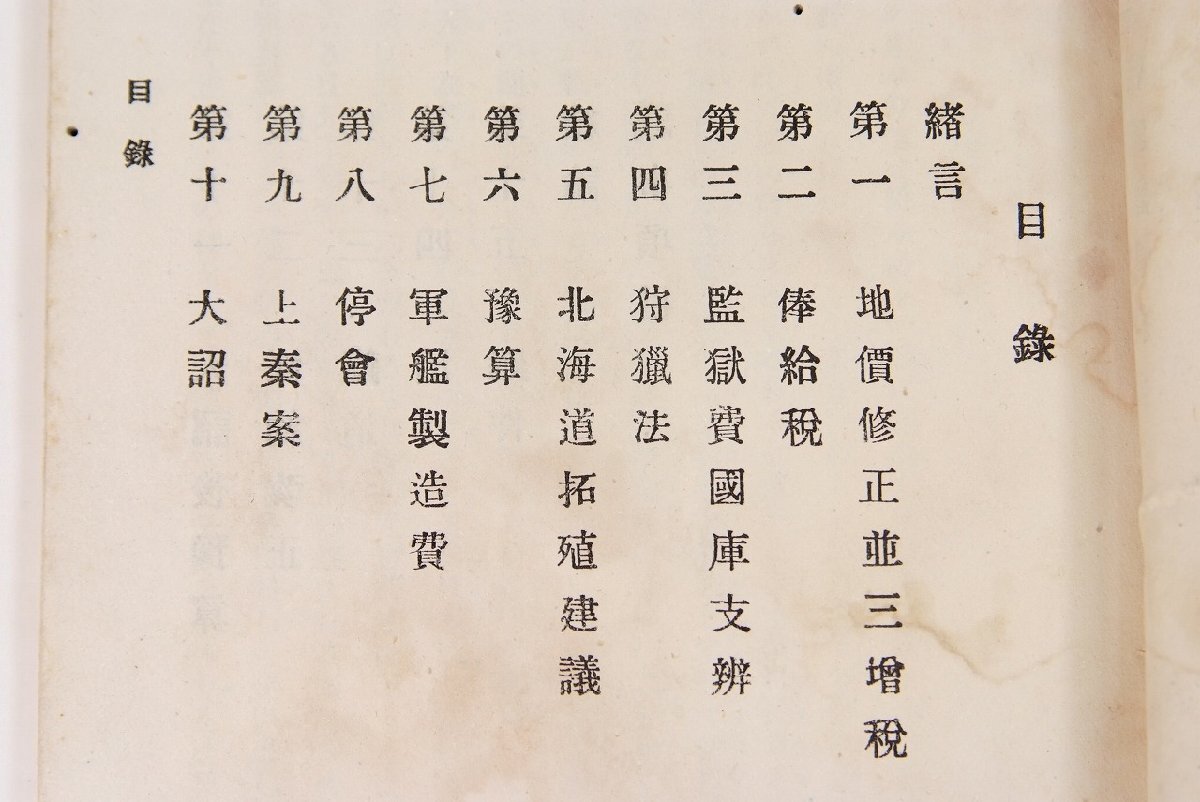 目錄
緒言
第一 地價修正並三增稅
第二 俸給稅
第三 監獄費國庫支辨
第四 狩獵法
第五 北海道拓殖建議
第六 豫算
第七 軍艦製造費
第八 停會
第九 上奏案
第十 大詔
目錄